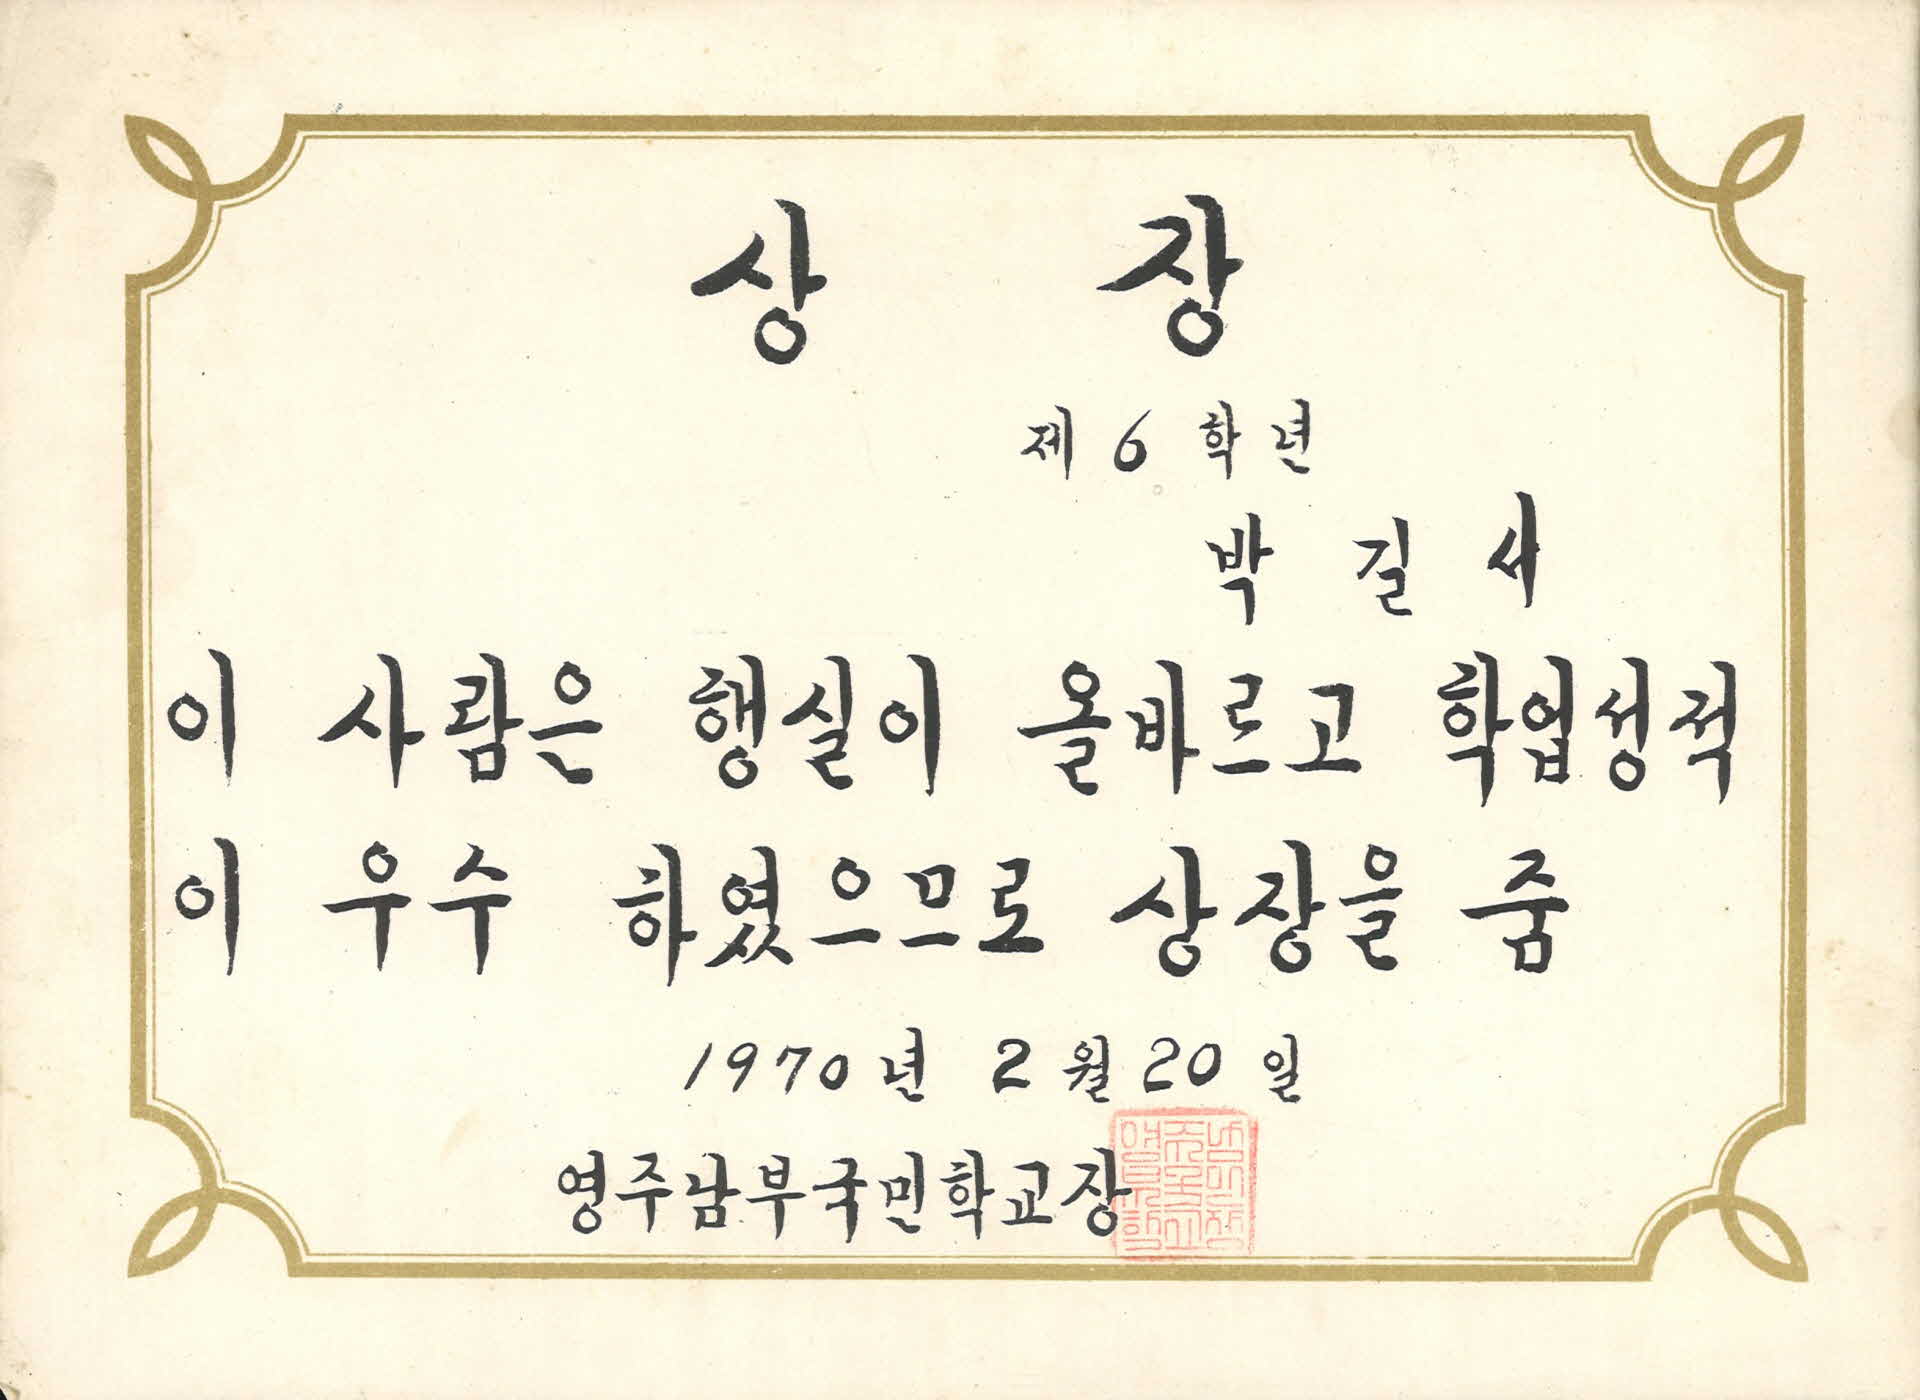 상 장
제 6 학년
박 길 서
이 사람은 행실이 올바르고 학업성적
이 우수 하였으므로 상장을 줌
1970년 2월 20일
영주남부국민학교장